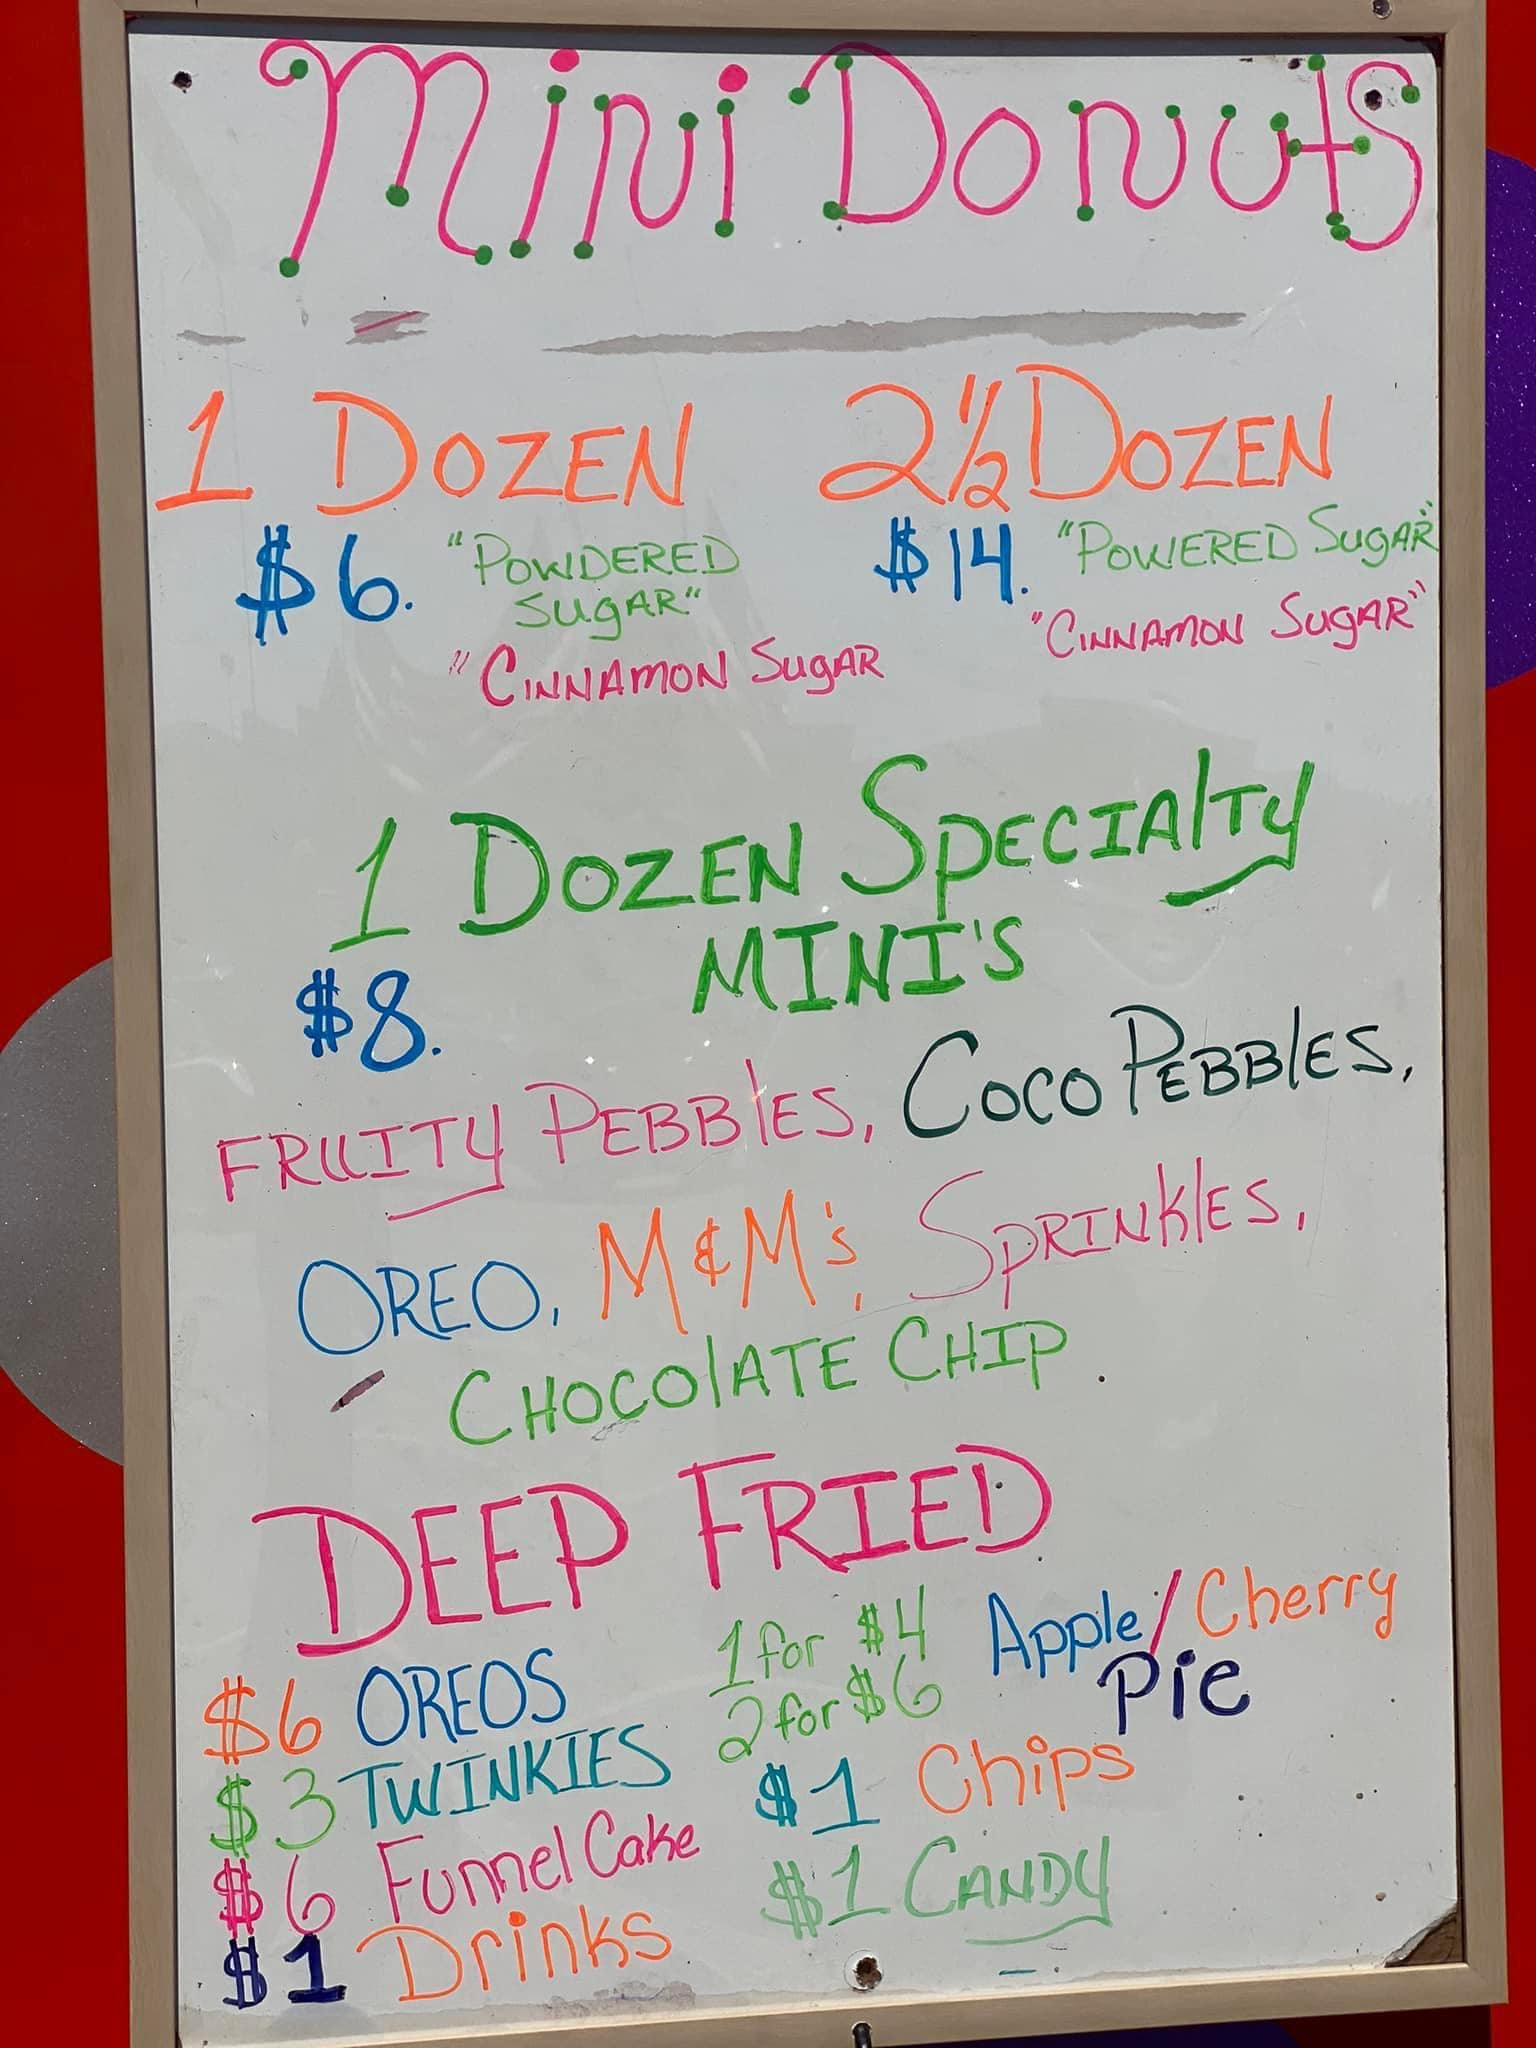 Mini Donuts
1 DOZEN
$6. "POWDERED
SUGAR"
"CINNAMON SUGAR
2½ DOZEN
$14. "POWERED SUGAR"
"CINNAMON SUGAR"
1 DOZEN SPECIALTY
MINI'S
$8.
FRUITY PEBBLES, COCO PEBBLES,
OREO, M&M's, SPRINKLES,
CHOCOLATE CHIP
DEEP FRIED
$6 OREOS
$3 TWINKIES
$6 Funnel Cake
$1 Drinks
1 for $4
2 for $6
Apple/Cherry
Pie
$1 Chips
$1 CANDY